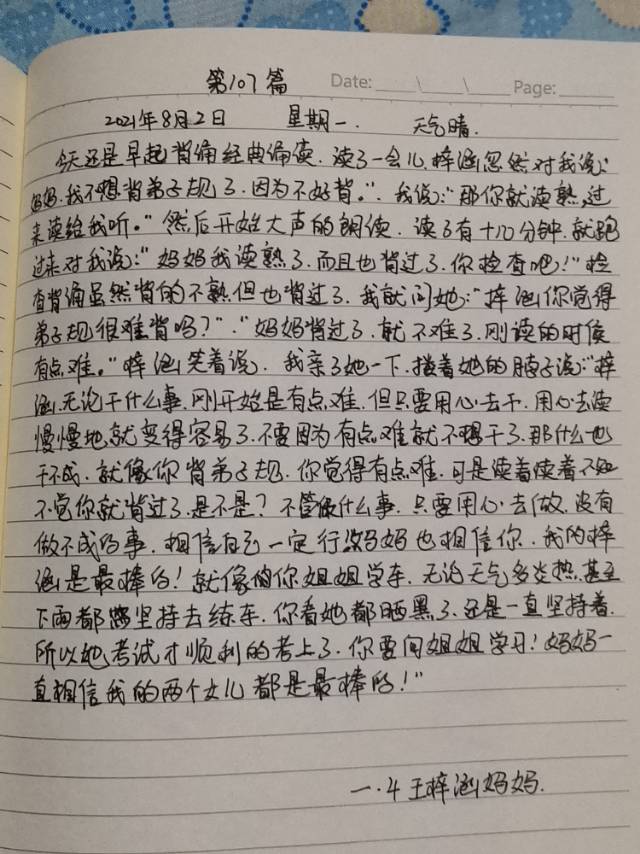 第107篇 Date: \ \ Page:
2021年8月2日 星期一. 天气晴.
今天还是早起背诵经典诵读.读了一会儿,梓涵忽然对我说:“
妈妈.我不想背弟子规了.因为不好背.”.我说:“那你就读熟,过
来读给我听.”然后开始大声的朗读.读了有十几分钟.就跑
过来对我说:“妈妈我读熟了.而且也背过了.你检查吧!”检
查背诵虽然背的不熟但也背过了.我就问她:“梓涵你觉得
弟子规很难背吗?”.“妈妈背过了.就不难了.刚读的时候
有点难.”梓涵笑着说.我亲了她一下.搂着她的脖子说:“梓
涵.无论干什么事.刚开始是有点难.但只要用心去干.用心去读
慢慢地就变得容易了.不要因为有点难就不想干了.那什么也
干不成.就像你背弟子规.你觉得有点难.可是读着读着不知
不觉你就背过了.是不是?不管做什么事.只要用心去做.没有
做不成的事.相信自己一定行.妈妈也相信你.我的梓
涵是最棒的!就像你姐姐学车.无论天气多炎热.甚至
下雨都坚持去练车.你看她都晒黑了.还是一直坚持着.
所以她考试才顺利的考上了.你要向姐姐学习!妈妈一
直相信我的两个女儿都是最棒的!”
一.4 王梓涵妈妈.